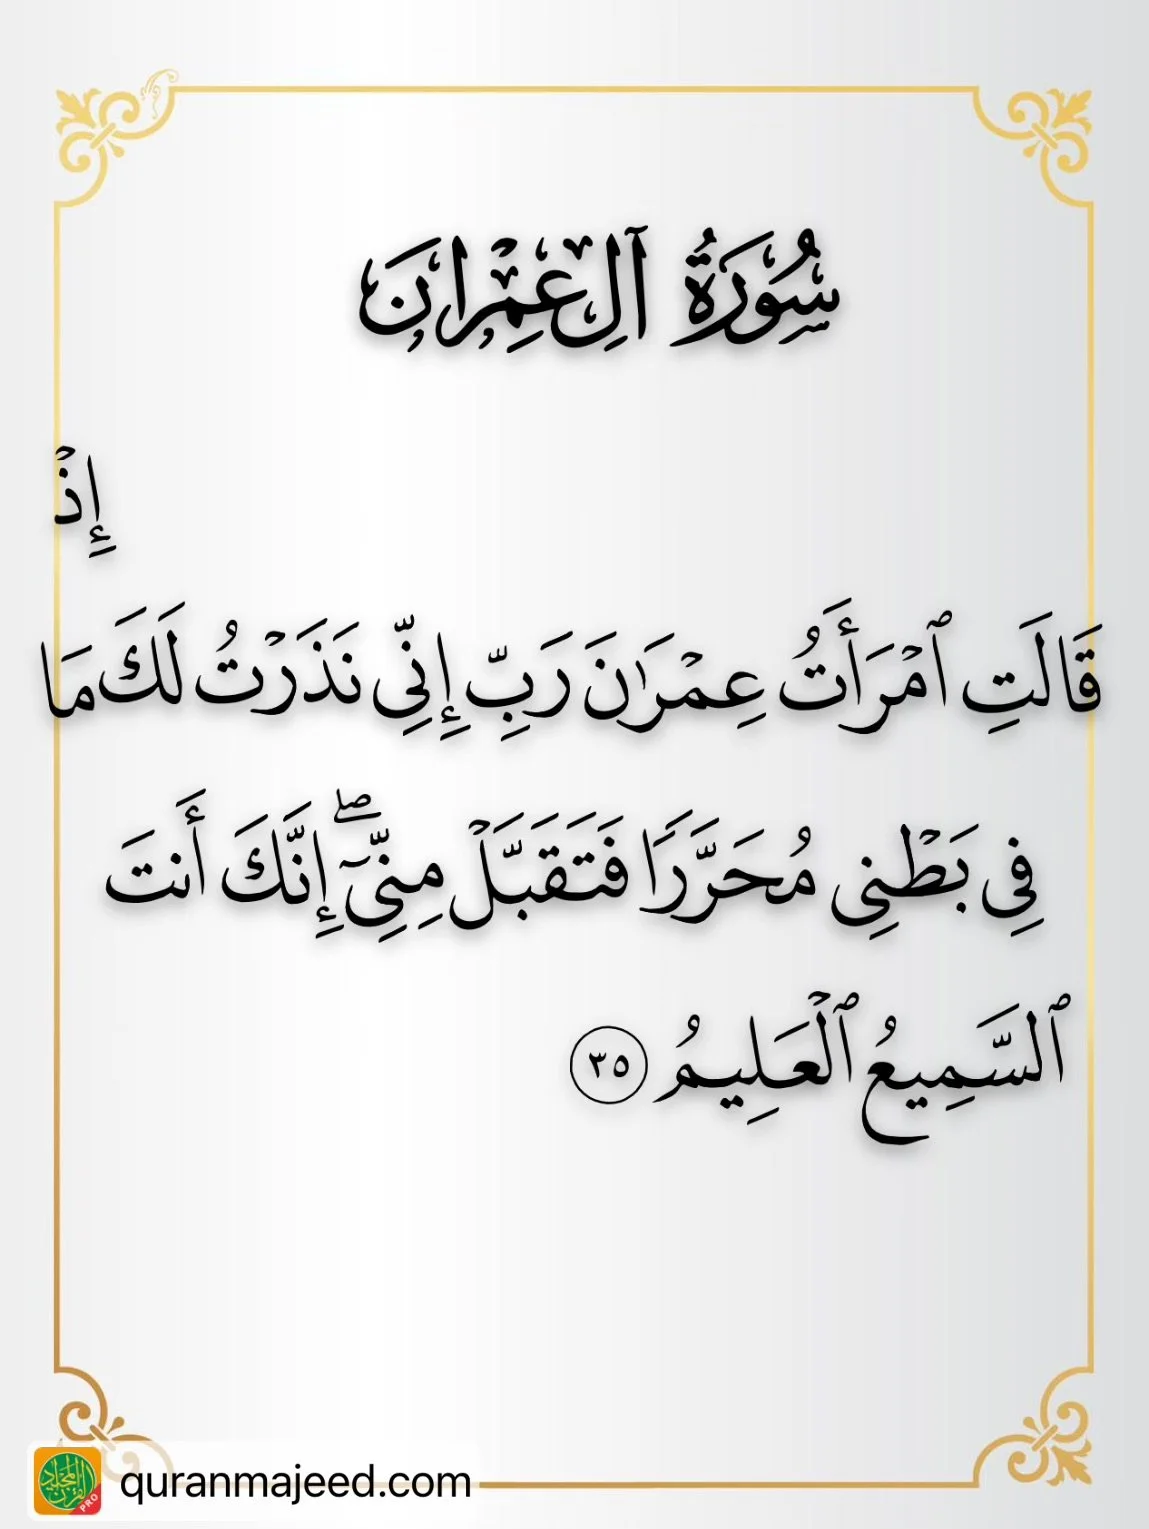 سُورَةُ آلِ عِمْرَانَ
إِذْ
قَالَتِ ٱمْرَأَتُ عِمْرَٰنَ رَبِّ إِنِّى نَذَرْتُ لَكَ مَا
فِى بَطْنِى مُحَرَّرًا فَتَقَبَّلْ مِنِّىٓ ۖ إِنَّكَ أَنتَ
ٱلسَّمِيعُ ٱلْعَلِيمُ ٣٥
quranmajeed.com